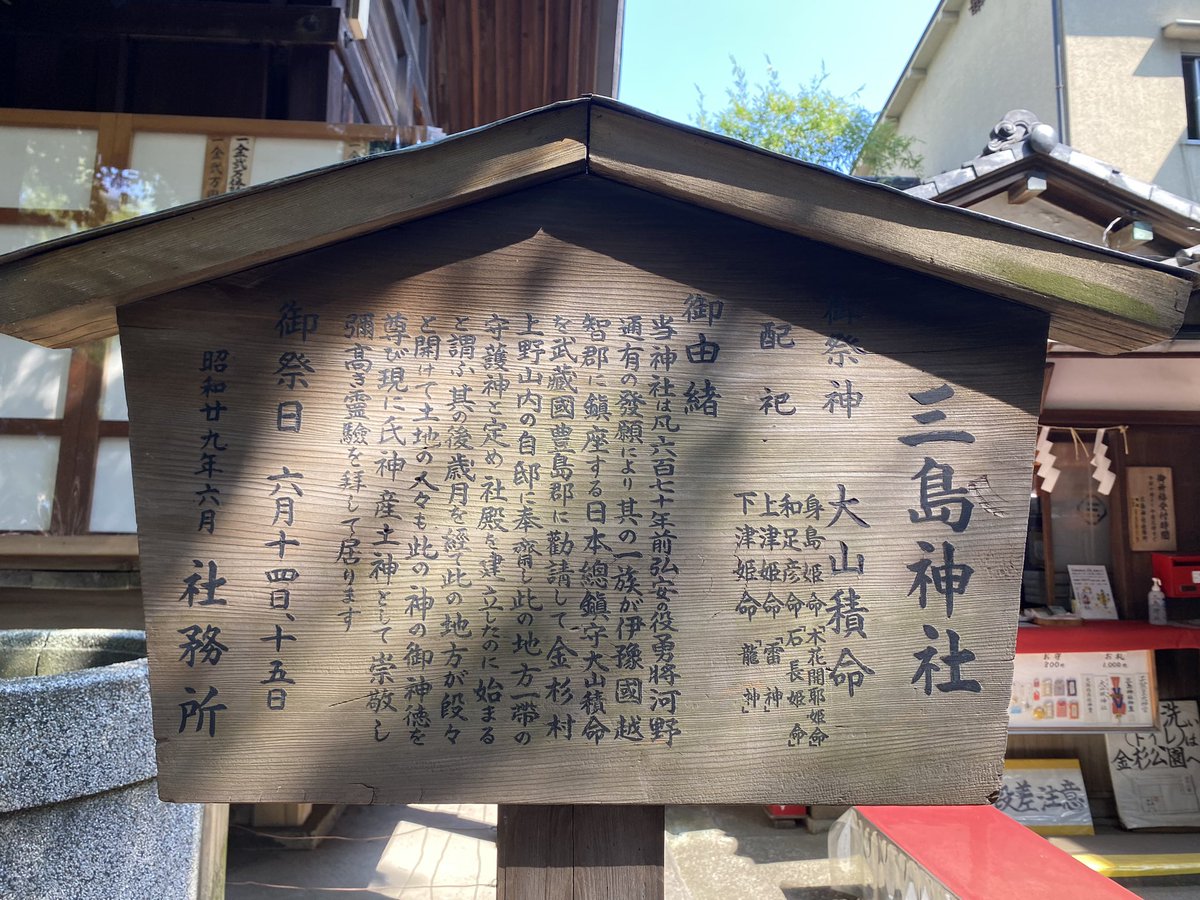 三島神社
御祭神　大山積命
配祀　身島姫命「木花開耶姫命」
和足彦命「石長姫命」
上津姫命「雷神」
下津姫命「龍神」
御由緒
当神社は凡六百七十年前弘安の役勇將河野
通有の發願により其の一族が伊豫國越
智郡に鎭座する日本總鎭守大山積命
を武藏國豊島郡に勸請して金杉村
上野山内の自邸に奉齋し此の地方一帯の
守護神と定め社殿を建立したのに始まる
と謂ふ其の後歳月を経て此の地方が段々
と開けて土地の人々も此の神の御神徳を
尊び現に氏神産土神として崇敬し
彌高き靈驗を拜して居ります
御祭日　六月十四日、十五日
昭和廿九年六月　社務所
一金弐万円
一金弐万
お守
200円
1,000円
洗い
(トイレ)は
金杉公園へ
段差注意